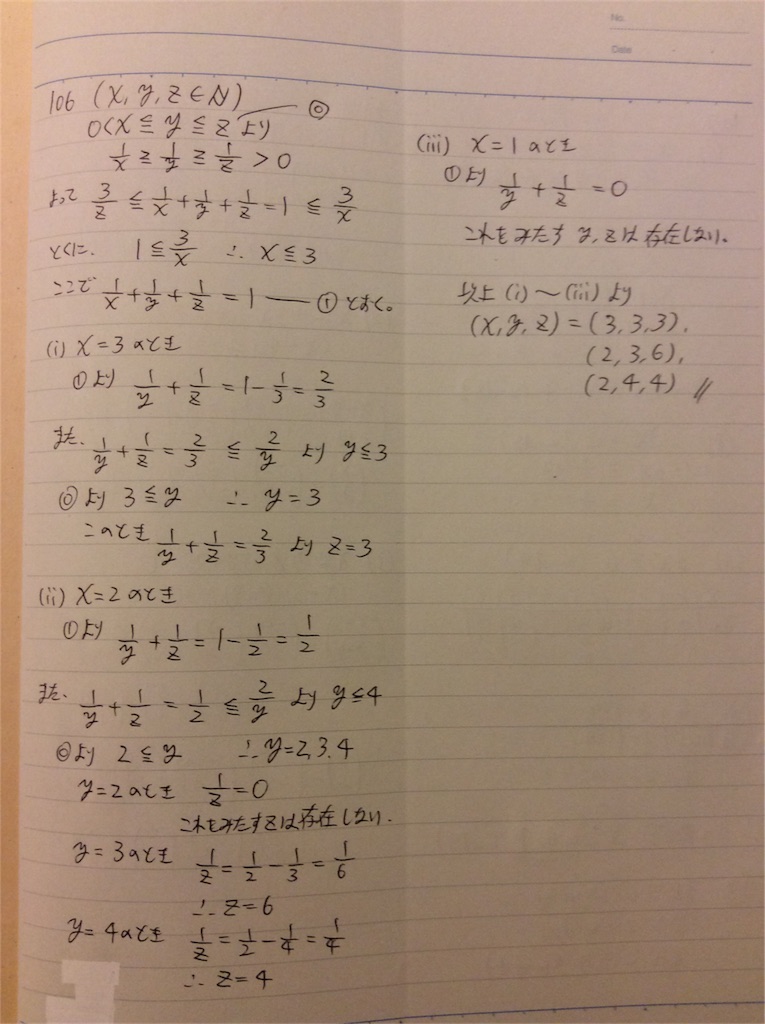 No.
Date
106 (x, y, z ∈ N)
0<x≦y≦zより ―⓪
1/x ≧ 1/y ≧ 1/z > 0
よって 3/z ≦ 1/x + 1/y + 1/z = 1 ≦ 3/x
とくに、 1 ≦ 3/x ∴ x≦3
ここで 1/x + 1/y + 1/z = 1 ― ① とおく。
(i) x=3のとき
①より 1/y + 1/z = 1 - 1/3 = 2/3
また、 1/y + 1/z = 2/3 ≦ 2/y より y≦3
⓪より 3≦y ∴ y=3
このとき 1/y + 1/z = 2/3 より z=3
(ii) x=2のとき
①より 1/y + 1/z = 1 - 1/2 = 1/2
また、 1/y + 1/z = 1/2 ≦ 2/y より y≦4
⓪より 2≦y ∴ y=2,3,4
y=2のとき 1/z = 0
これをみたすzは存在しない.
y=3のとき 1/z = 1/2 - 1/3 = 1/6
∴ z=6
y=4のとき 1/z = 1/2 - 1/4 = 1/4
∴ z=4
(iii) x=1のとき
①より 1/y + 1/z = 0
これをみたす y, zは存在しない。
以上 (i)〜(iii) より
(x, y, z) = (3, 3, 3),
(2, 3, 6),
(2, 4, 4) //